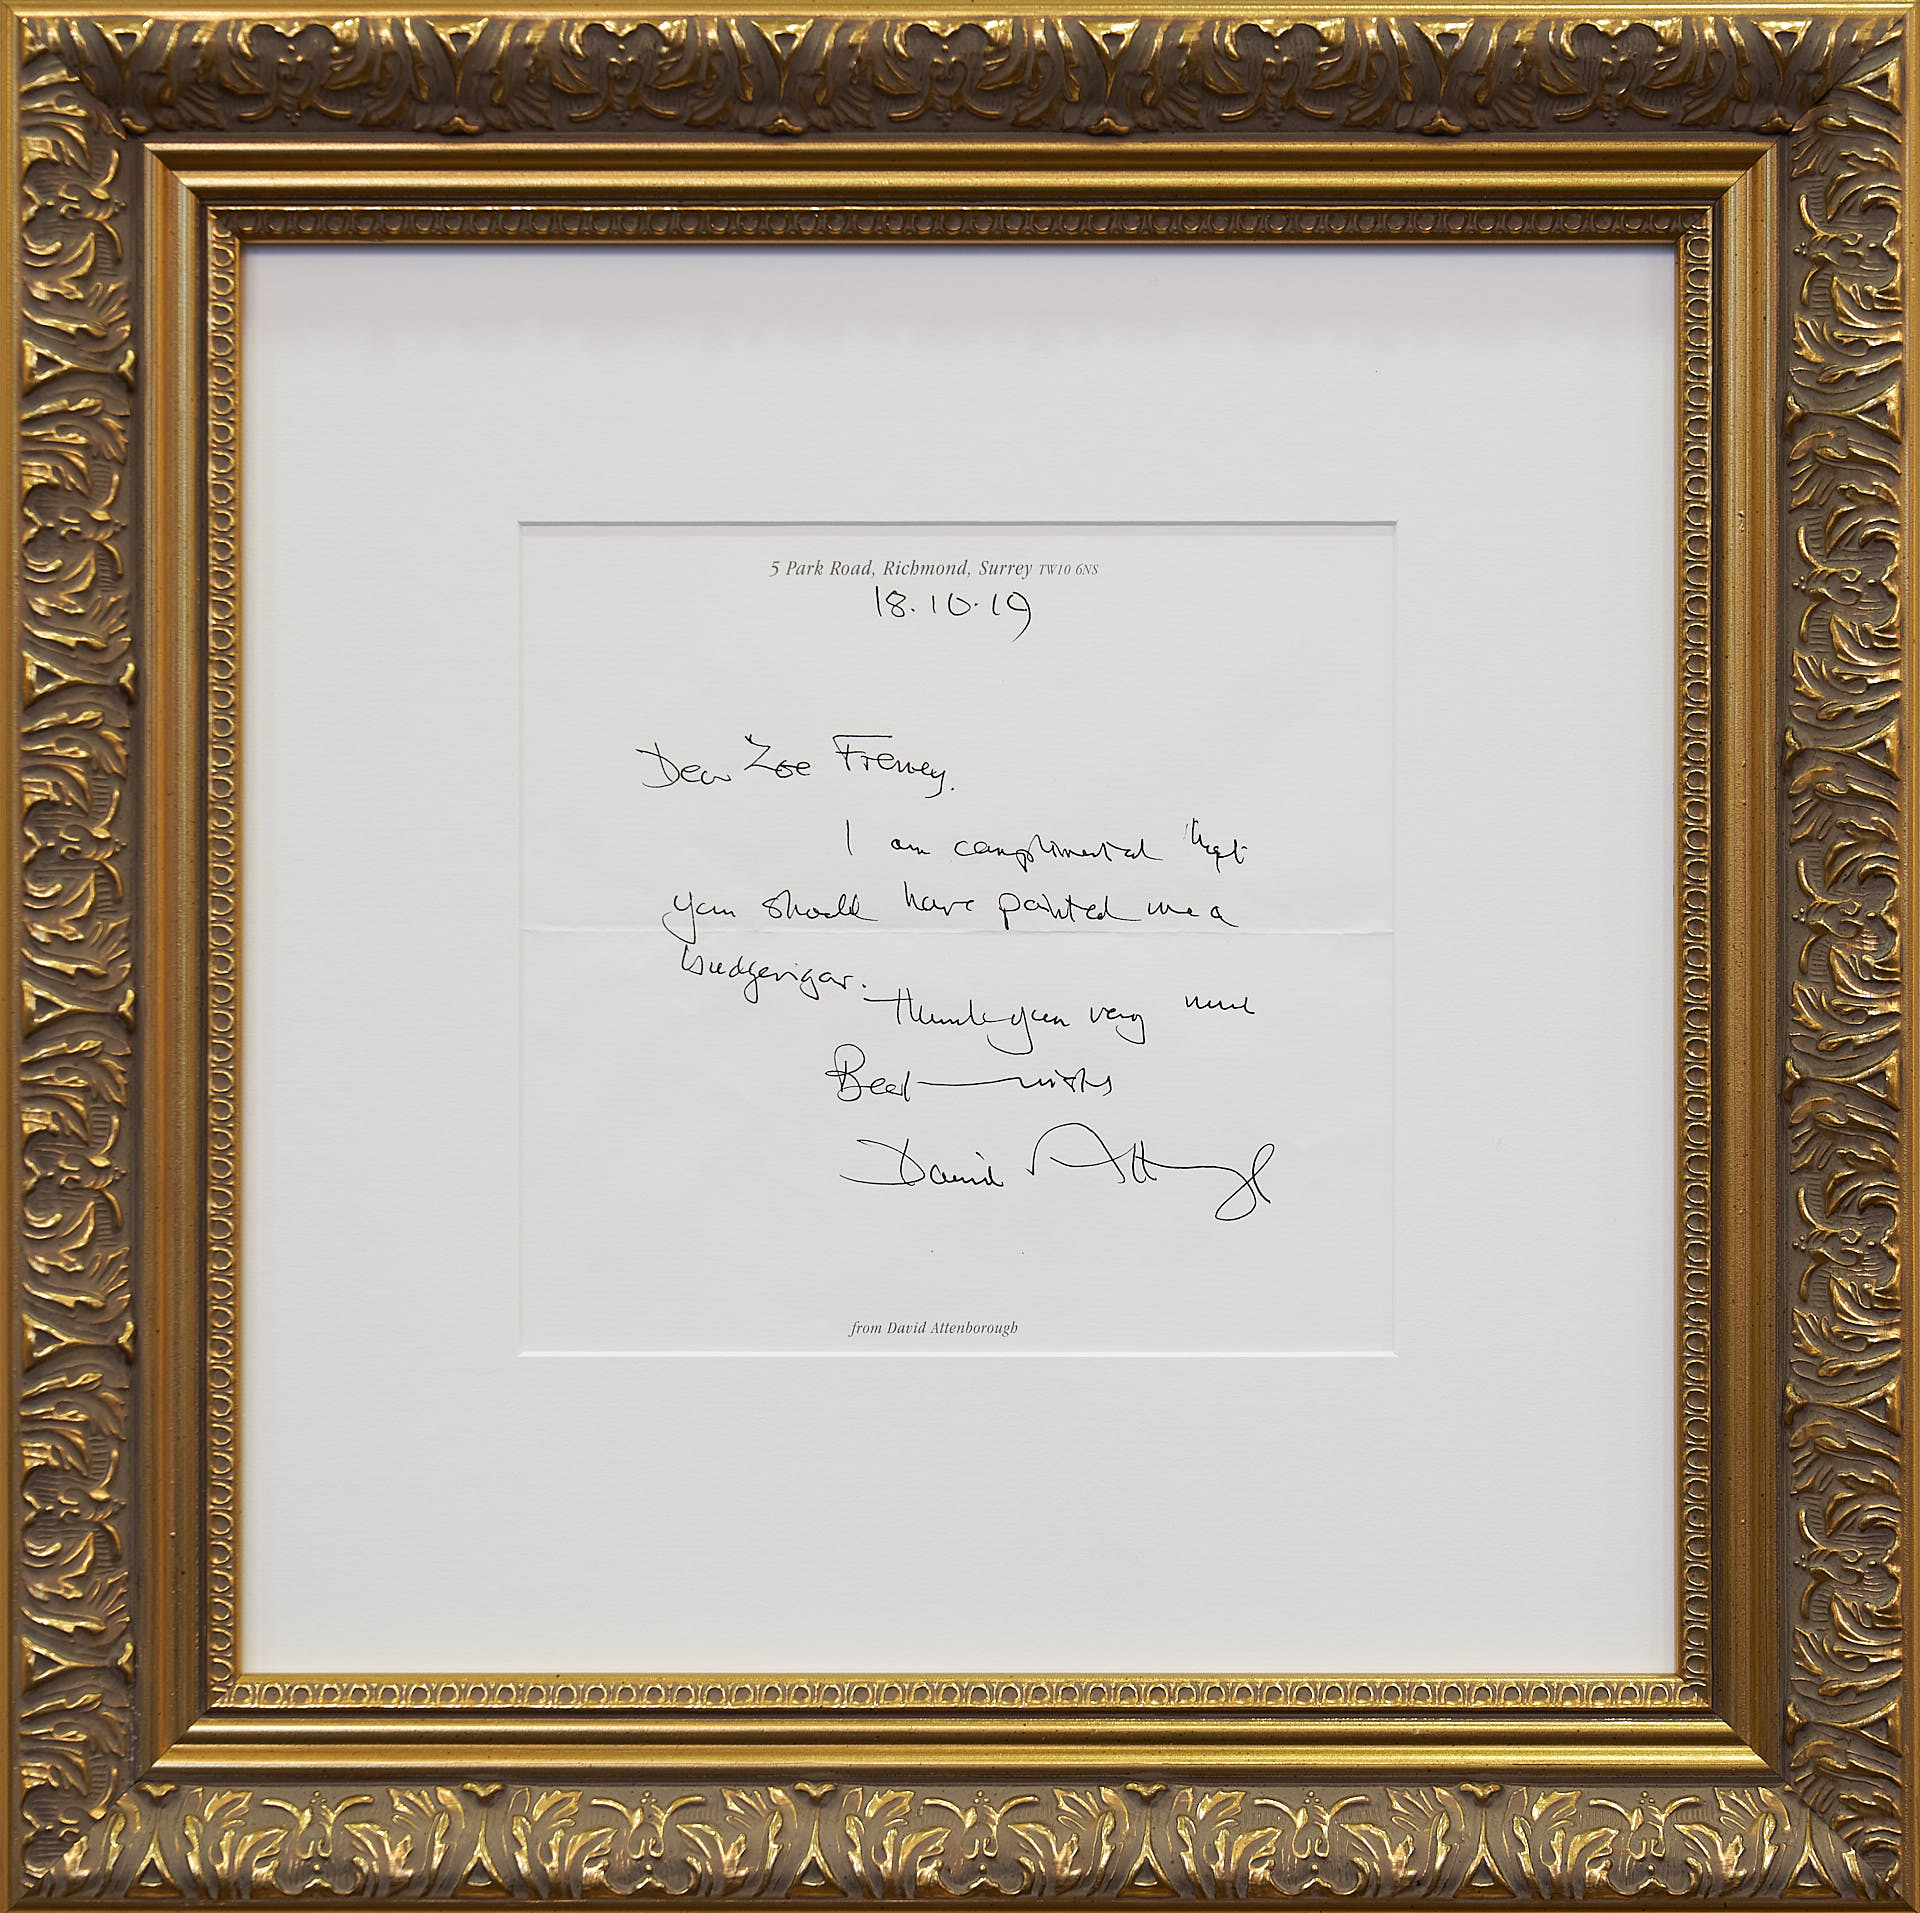 5 Park Road, Richmond, Surrey TW10 6NS
18.10.19
Dear Zoe Freney.
I am complimented that
you should have painted me a
budgerigar.
Thank you very much
Best wishes
David Attenborough
from David Attenborough